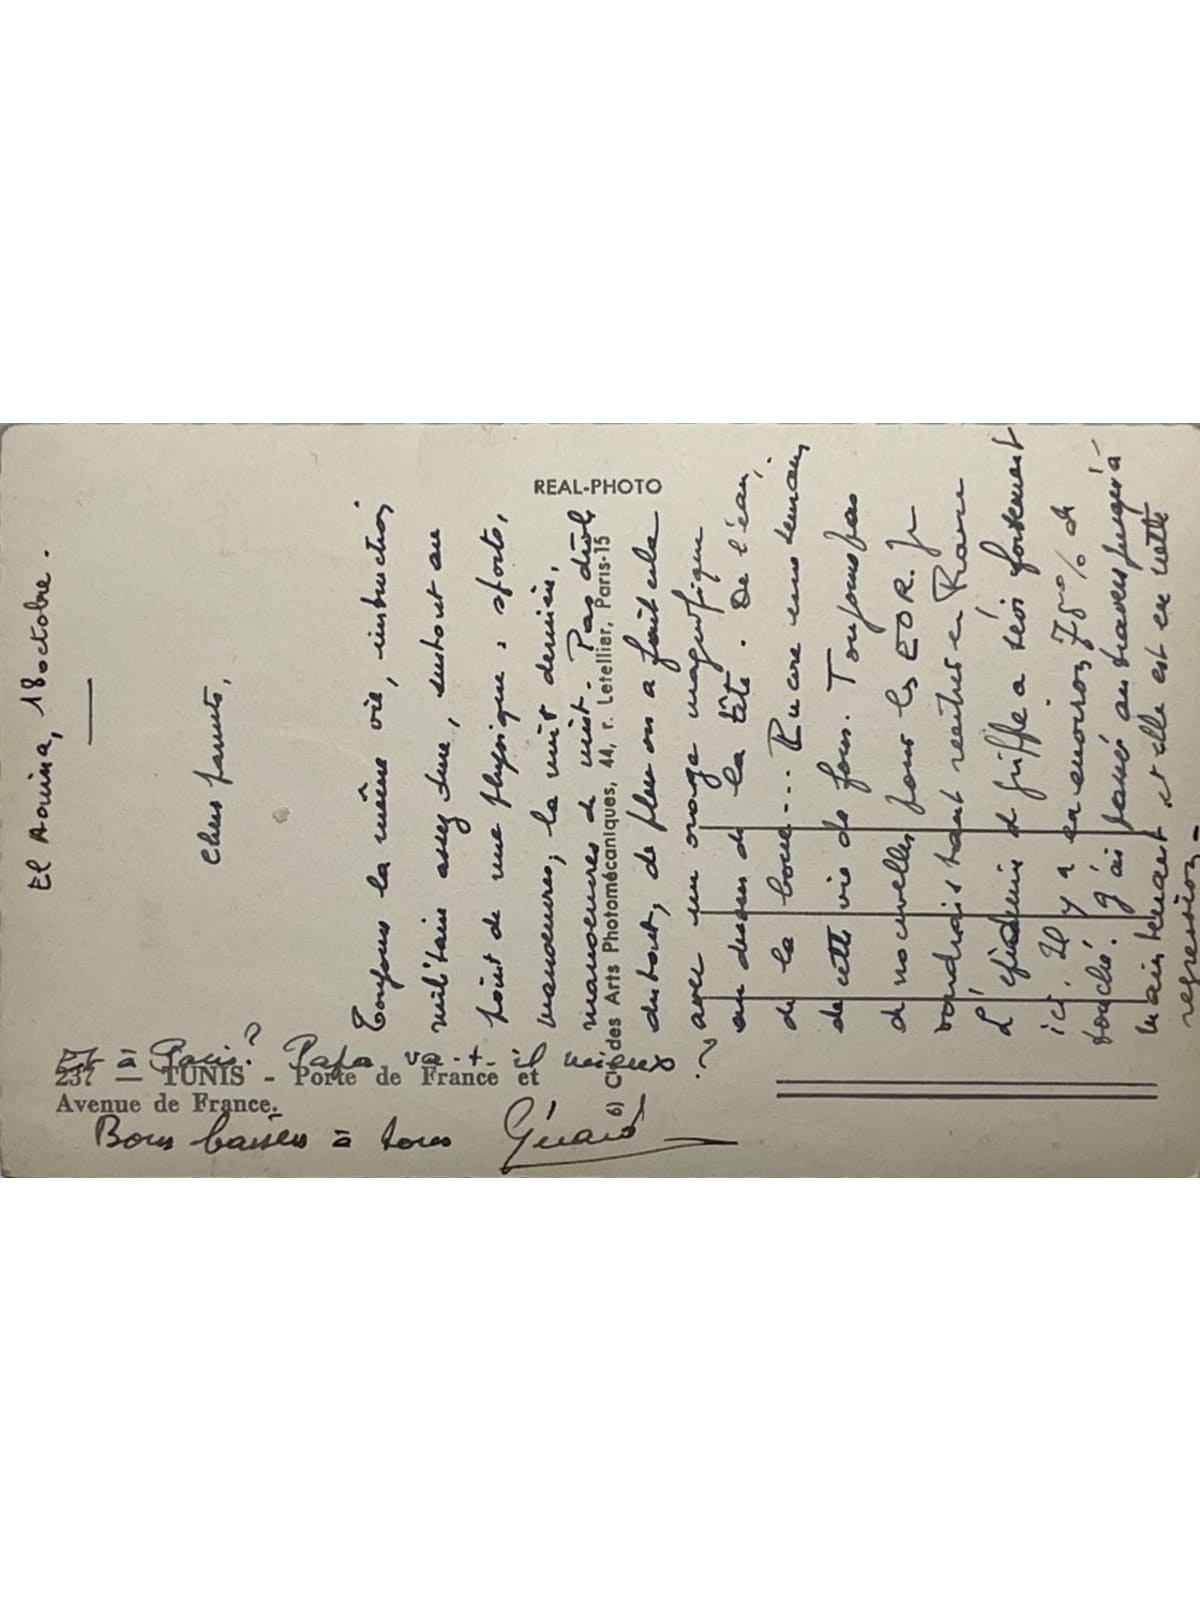 El Aouina, 18 octobre.
Chers parents,
Toujours la même vie, instruction
militaire assez dure, surtout au
point de vue physique : sports,
manoeuvres, la nuit dernière,
manoeuvres de nuit. Pas drôle
du tout, de plus on a fait cela
avec un orage magnifique
au dessus de la tête. De l'eau,
de la boue... Encore une semaine
de cette vie de fous. Toujours pas
de nouvelles pour les EOR. Je
voudrais tant rentrer en France
L'épidémie de grippe a sévi fortement
ici. Il y a eu environ 75% de
touchés. J'ai passé au travers jusqu'à
maintenant et elle est en nette
régression.
Et à Paris? Papa va-t-il mieux?
Bons baisers à tous Gérard
REAL-PHOTO
6) Cie des Arts Photomécaniques, 44, r. Letellier, Paris-15
237 — TUNIS - Porte de France et
Avenue de France.